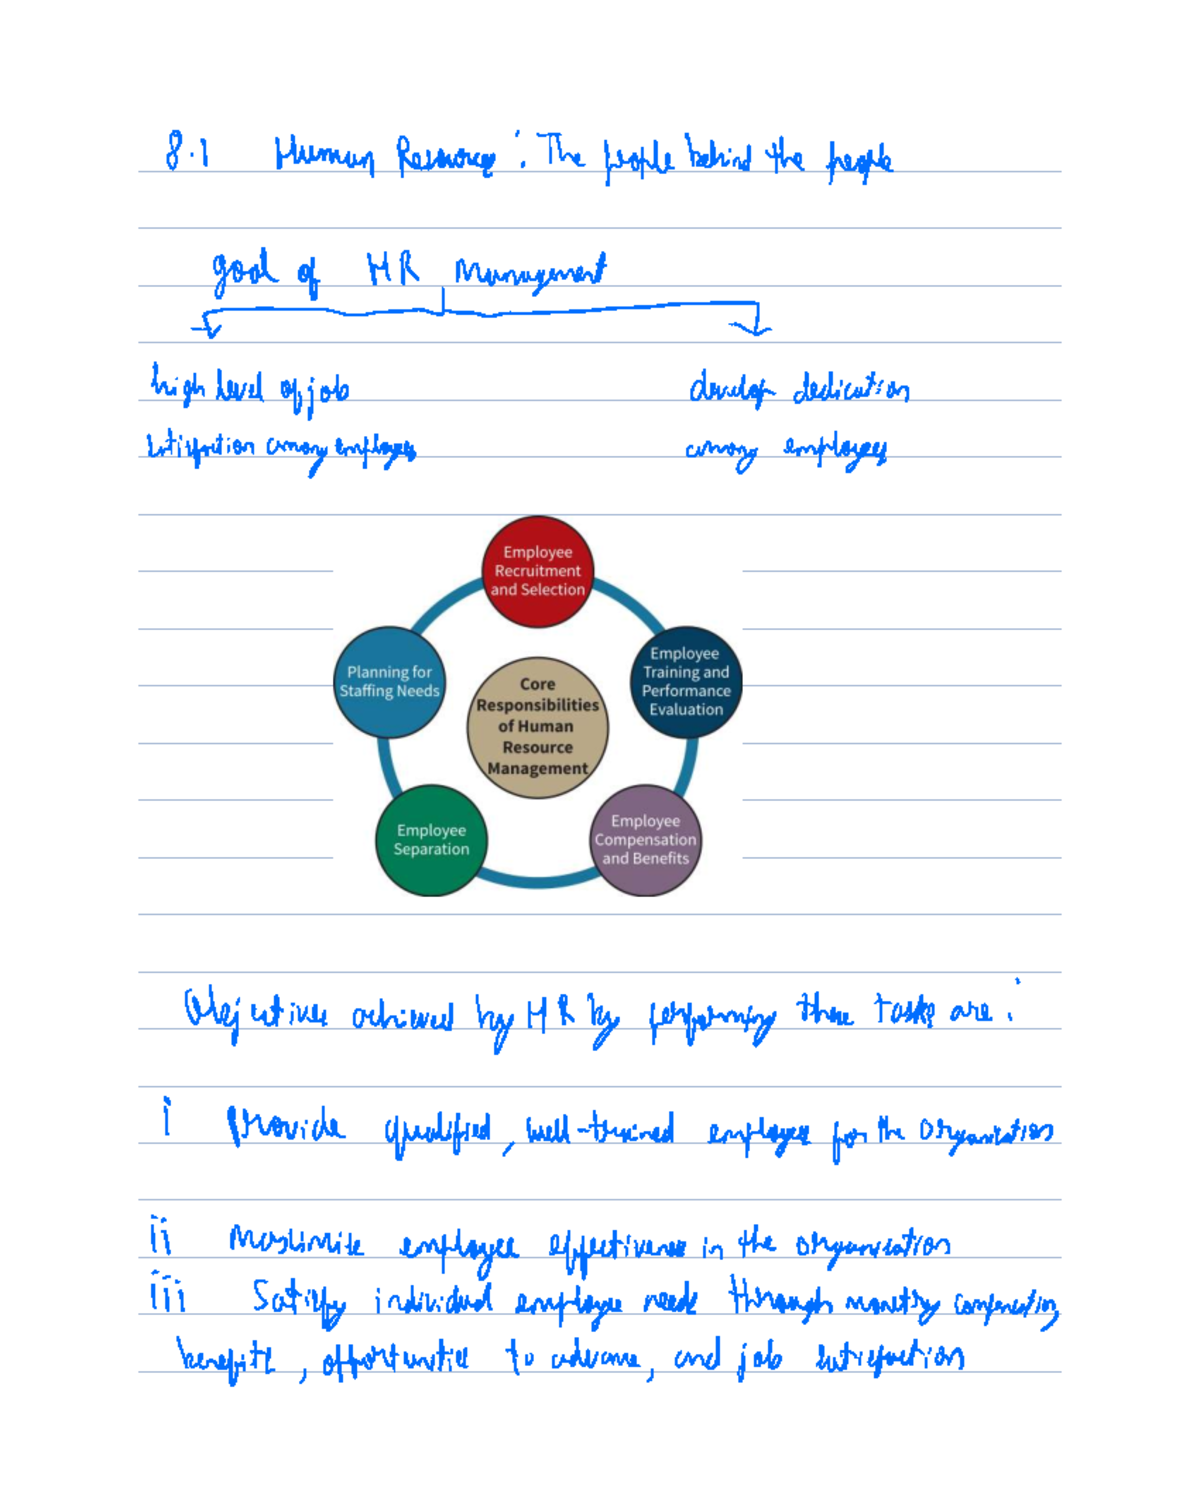 8.1 Human Resource : The people behind the people
goal of HR Management
high level of job
satisfaction among employees
develop dedication
among employees
Employee
Recruitment
and Selection
Planning for
Staffing Needs
Employee
Training and
Performance
Evaluation
Core
Responsibilities
of Human
Resource
Management
Employee
Separation
Employee
Compensation
and Benefits
Objectives achieved by HR by performing these tasks are :
i Provide qualified, well-trained employees for the organisation
ii Maximise employee effectiveness in the organisation
iii Satisfy individual employee needs through monetary compensation,
benefits, opportunities to advance, and job satisfaction